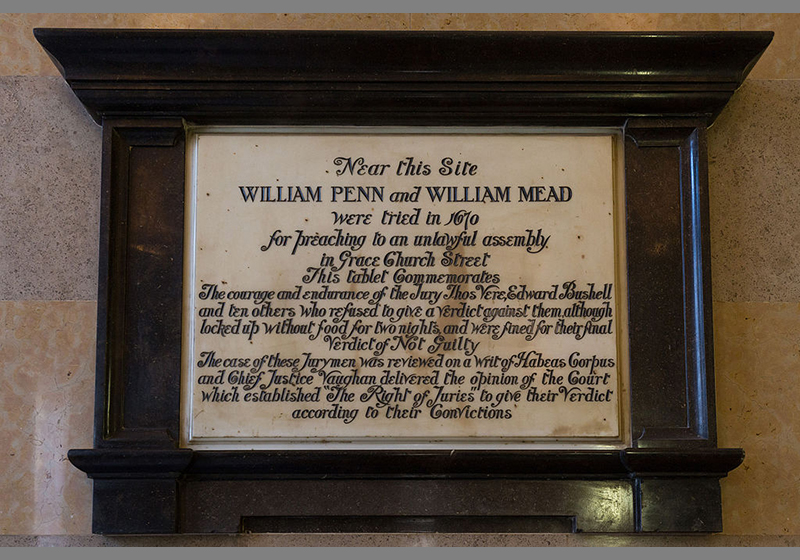 Near this Site
WILLIAM PENN and WILLIAM MEAD
were tried in 1670
for preaching to an unlawful assembly
in Grace Church Street
This tablet Commemorates
The courage and endurance of the Jury Thos Vere, Edward Bushell
and ten others who refused to give a verdict against them, although
locked up without food for two nights, and were fined for their final
Verdict of Not Guilty
The case of these Jurymen was reviewed on a writ of Habeas Corpus
and Chief Justice Vaughan delivered the opinion of the Court
which established "The Right of Juries" to give their Verdict
according to their Convictions